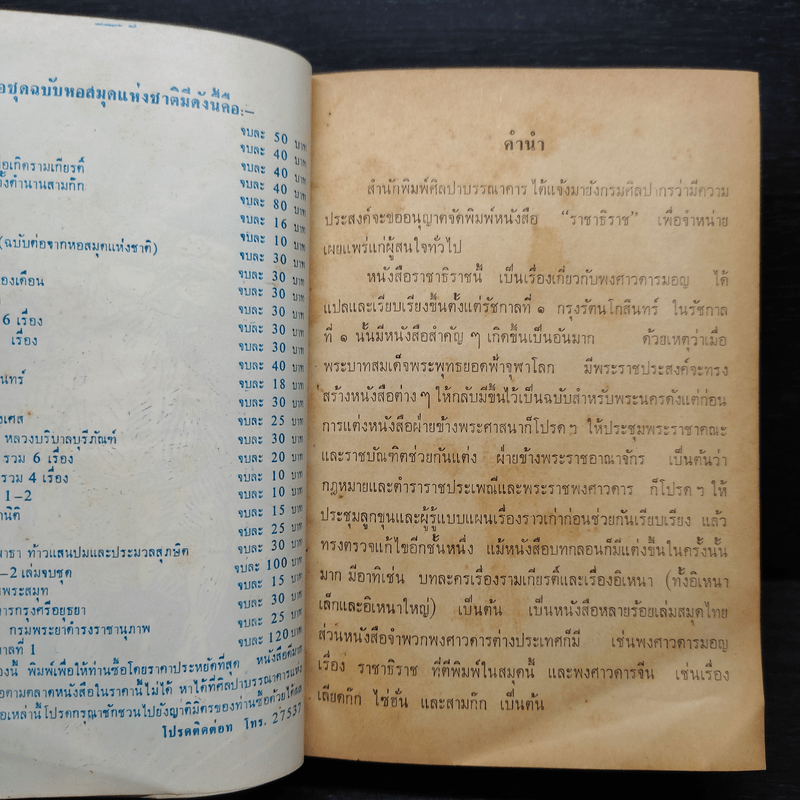 อชุดฉบับหอสมุดแห่งชาติมีดังนี้คือ:–
จบละ 50 บาท
จบละ 40 บาท
อเกิดรามเกียรติ์ จบละ 40 บาท
ั้งตำนานสามก๊ก จบละ 40 บาท
จบละ 80 บาท
จบละ 16 บาท
(ฉบับต่อจากหอสมุดแห่งชาติ) จบละ 10 บาท
จบละ 30 บาท
องเตือน จบละ 30 บาท
จบละ 30 บาท
6 เรื่อง จบละ 30 บาท
เรื่อง จบละ 30 บาท
จบละ 40 บาท
นทร์ จบละ 18 บาท
จบละ 30 บาท
งเศส จบละ 25 บาท
หลวงบริบาลบุรีภัณฑ์ จบละ 30 บาท
รวม 6 เรื่อง จบละ 20 บาท
รวม 4 เรื่อง จบละ 10 บาท
1–2 จบละ 10 บาท
านิติ จบละ 15 บาท
จบละ 25 บาท
พาธา ท้าวแสนปมและประมวลสุภษิต จบละ 30 บาท
–2 เล่มจบชุด จบละ 100 บาท
พระสมุท จบละ 15 บาท
การกรุงศรีอยุธยา จบละ 30 บาท
กรมพระยาดำรงราชานุภาพ จบละ 25 บาท
าลที่ 1 จบละ 120 บาท
องนี้ พิมพ์เพื่อให้ท่านซื้อโดยราคาประหยัดที่สุด หนังสือดีมาก
อตามตลาดหนังสือในราคานี้ไม่ได้ หาได้ที่ศิลปาบรรณาคารแห่ง
อเหล่านี้โปรดกรุณาชักชวนไปยังญาติมิตรของท่านซื้อด้วยได้
โปรดติดต่อท โทร. 27537
คำนำ
สำนักพิมพ์ศิลปาบรรณาคาร ได้แจ้งมายังกรมศิลปากรว่ามีความ
ประสงค์จะขออนุญาตจัดพิมพ์หนังสือ “ราชาธิราช” เพื่อจำหน่าย
เผยแพร่แก่ผู้สนใจทั่วไป
หนังสือราชาธิราชนี้ เป็นเรื่องเกี่ยวกับพงศาวดารมอญ ได้
แปลและเรียบเรียงขึ้นตั้งแต่รัชกาลที่ ๑ กรุงรัตนโกสินทร์ ในรัชกาล
ที่ ๑ นั้นมีหนังสือสำคัญ ๆ เกิดขึ้นเป็นอันมาก ด้วยเหตุว่าเมื่อ
พระบาทสมเด็จพระพุทธยอดฟ้าจุฬาโลก มีพระราชประสงค์จะทรง
สร้างหนังสือต่าง ๆ ให้กลับมีขึ้นไว้เป็นฉบับสำหรับพระนครดังแต่ก่อน
การแต่งหนังสือฝ่ายข้างพระศาสนาก็โปรด ฯ ให้ประชุมพระราชาคณะ
และราชบัณฑิตช่วยกันแต่ง ฝ่ายข้างพระราชอาณาจักร เป็นต้นว่า
กฎหมายและตำราราชประเพณีและพระราชพงศาวดาร ก็โปรด ฯ ให้
ประชุมลูกขุนและผู้รู้แบบแผนเรื่องราวเก่าก่อนช่วยกันเรียบเรียง แล้ว
ทรงตรวจแก้ไขอีกชั้นหนึ่ง แม้หนังสือบทกลอนก็มีแต่งขึ้นในครั้งนั้น
มาก มีอาทิเช่น บทละครเรื่องรามเกียรติ์และเรื่องอิเหนา (ทั้งอิเหนา
เล็กและอิเหนาใหญ่) เป็นต้น เป็นหนังสือหลายร้อยเล่มสมุดไทย
ส่วนหนังสือจำพวกพงศาวดารต่างประเทศก็มี เช่นพงศาวดารมอญ
เรื่อง ราชาธิราช ที่ตีพิมพ์ในสมุดนี้ และพงศาวดารจีน เช่นเรื่อง
เลียดก๊ก ไซ่ฮั่น และสามก๊ก เป็นต้น